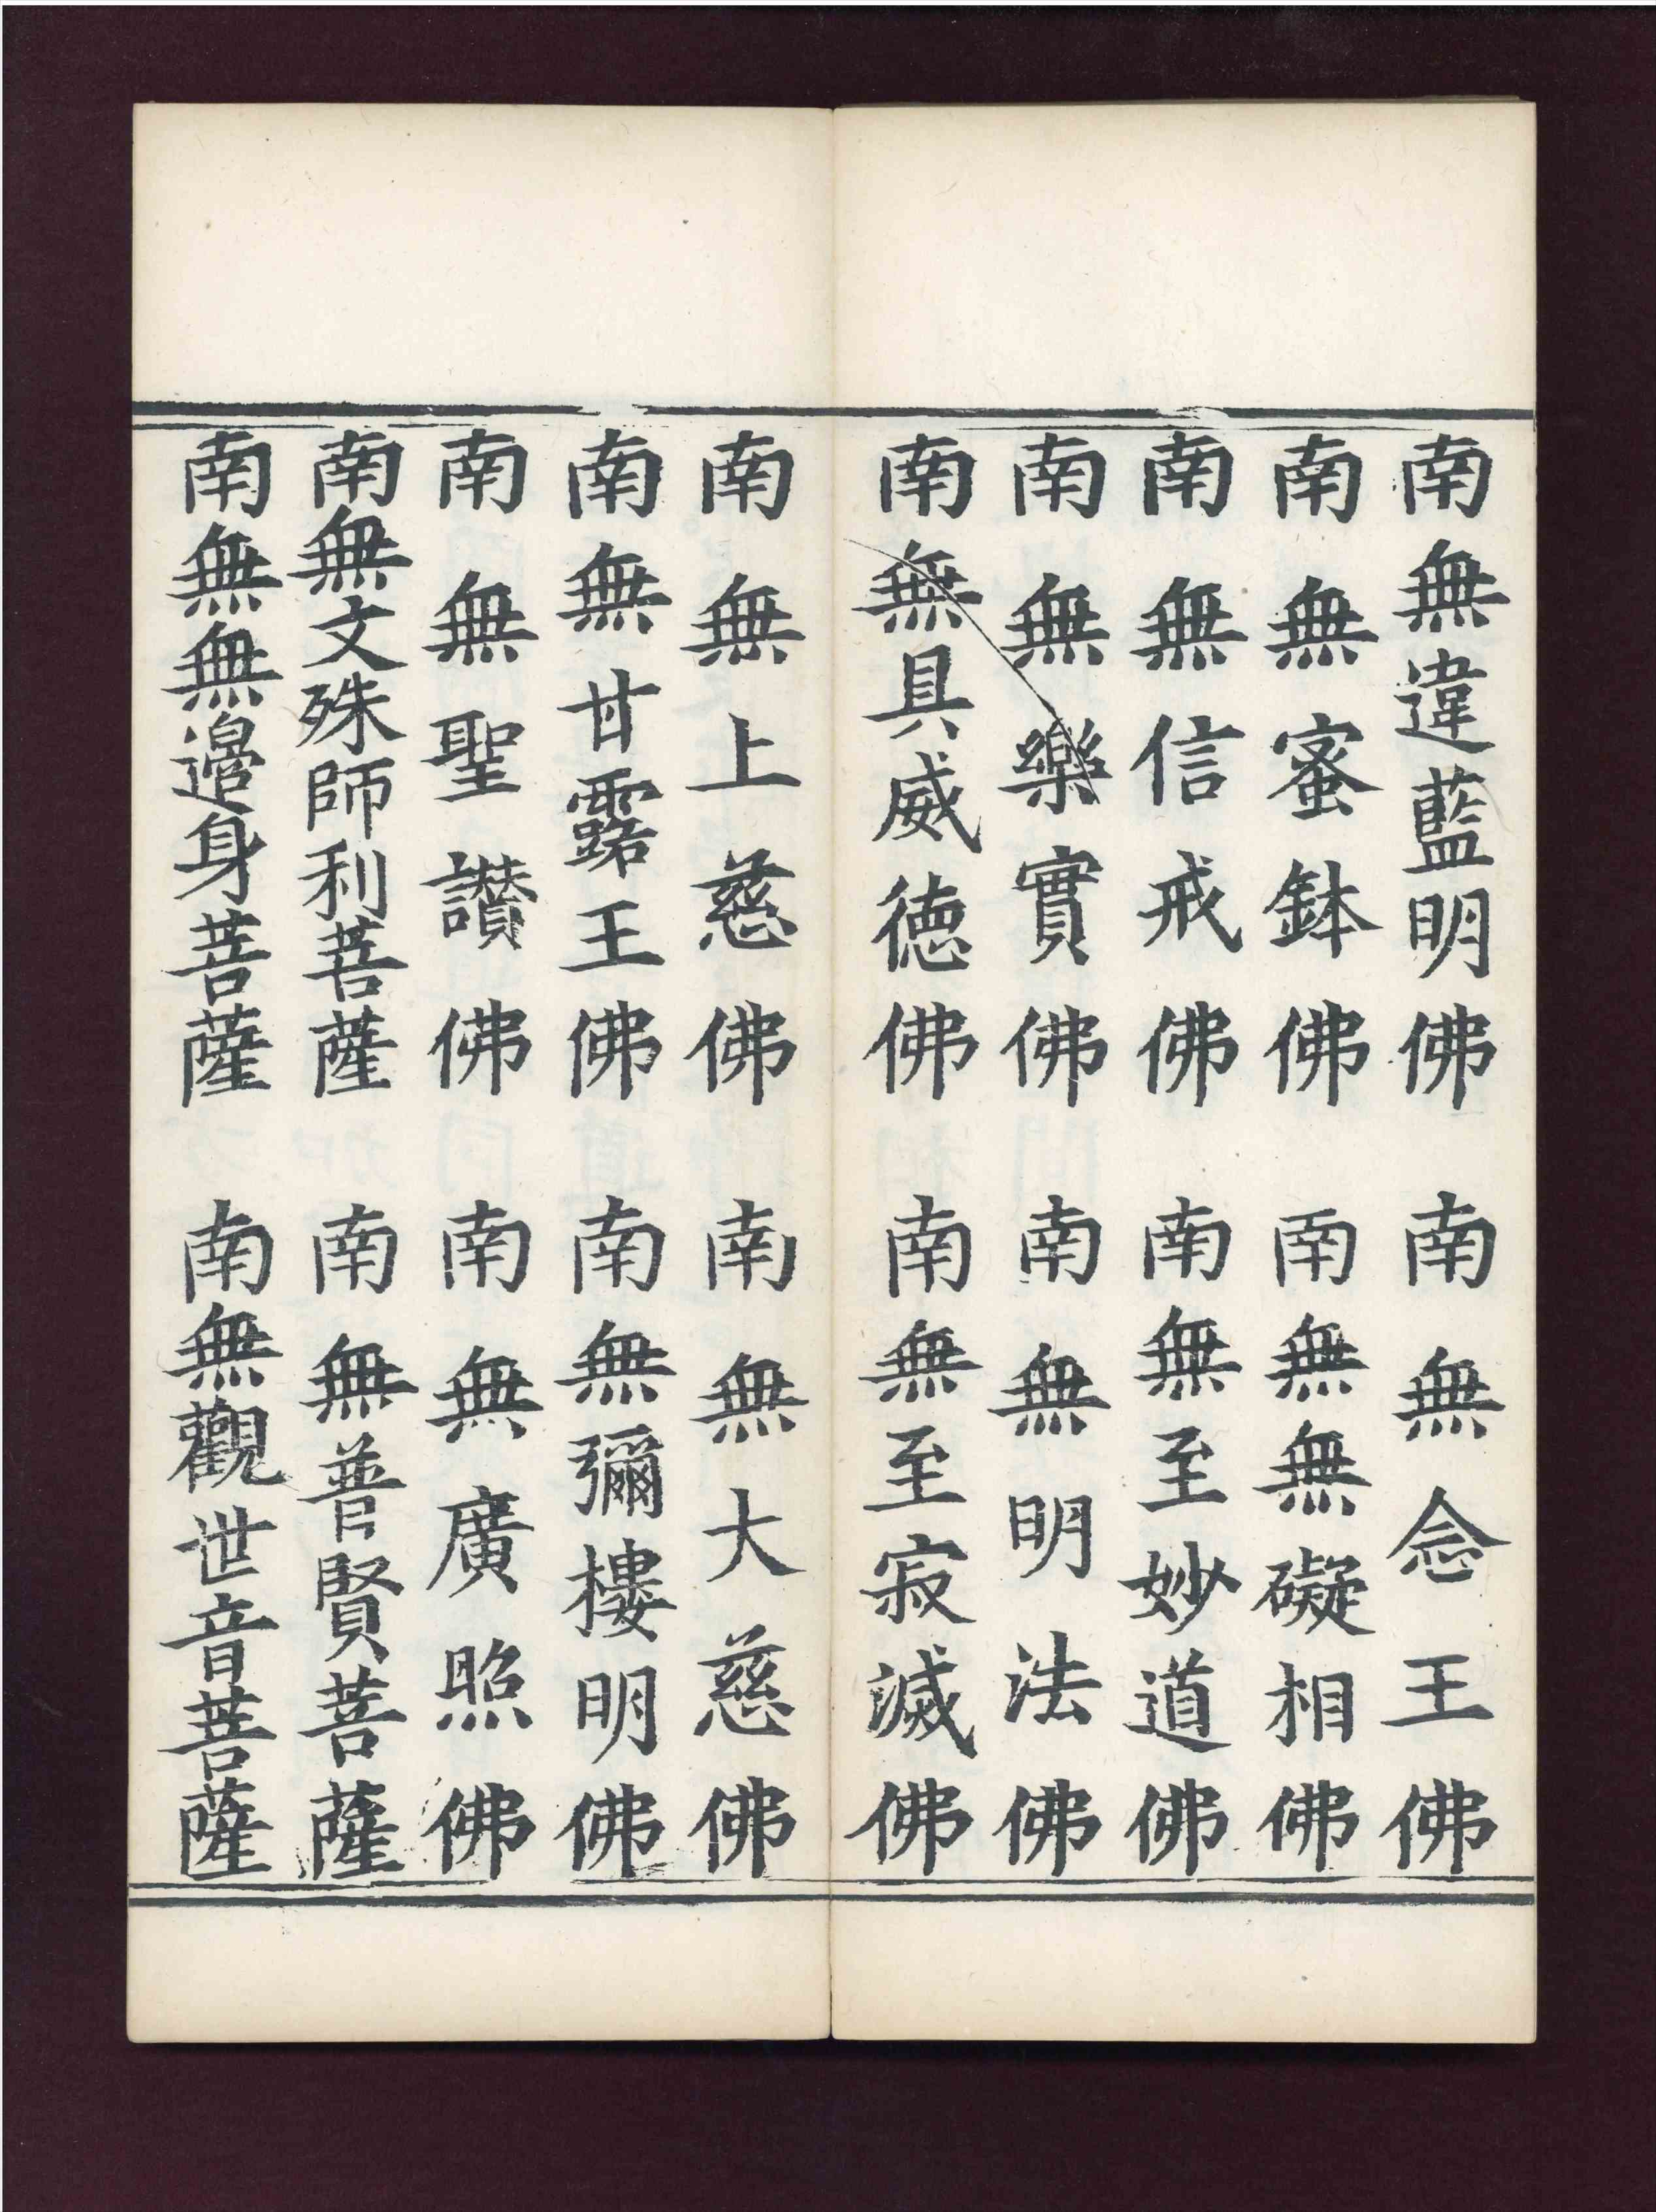 南無違藍明佛　南無念王佛
南無蜜鉢佛　南無無礙相佛
南無信戒佛　南無至妙道佛
南無樂實佛　南無明法佛
南無具威德佛　南無至寂滅佛
南無上慈佛　南無大慈佛
南無甘露王佛　南無彌樓明佛
南無聖讚佛　南無廣照佛
南無文殊師利菩薩　南無普賢菩薩
南無無邊身菩薩　南無觀世音菩薩